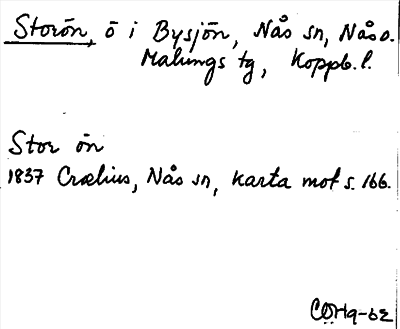 Storön, ö i Bysjön, Nås sn, Nås o.
Malungs tg, Koppb. l.
Stor ön
1837 Crælius, Nås sn, karta mot s. 166.